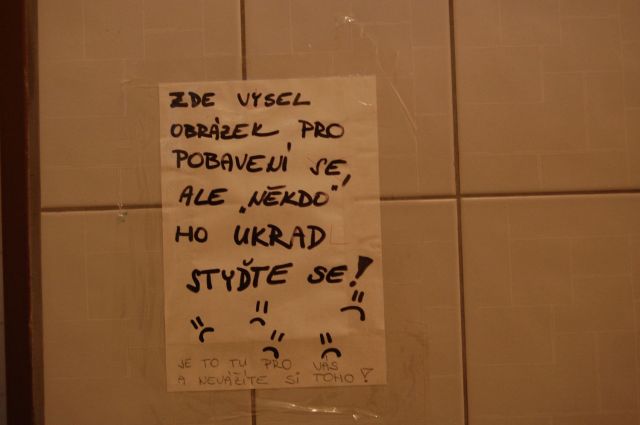 ZDE VYSEL
OBRÁZEK PRO
POBAVENÍ SE,
ALE „NĚKDO"
HO UKRADL
STYĎTE SE!
JE TO TU PRO VÁS
A NEVÁŽÍTE SI TOHO!